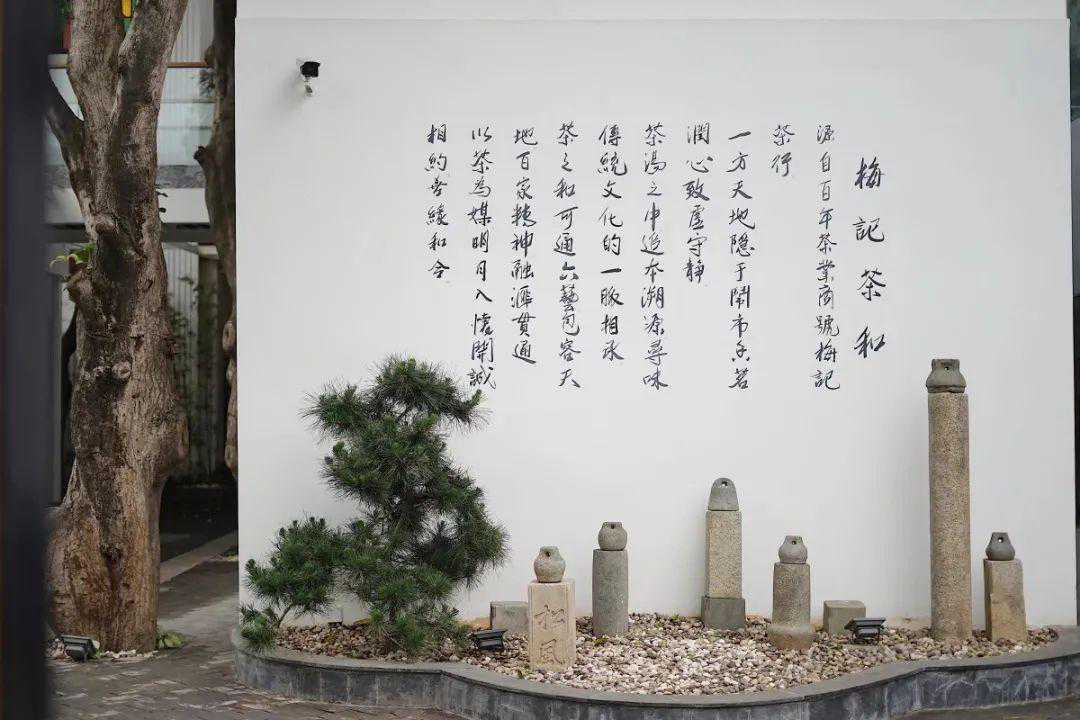 梅記茶和
源自百年茶業商號梅記
茶行
一方天地隐于鬧市香茗
潤心致虛守静
茶湯之中追本溯源尋味
傳統文化的一脉相承
茶之和可通六藝包容天
地百家精神融滙貫通
以茶為媒明月入懷開誠
相約春綾和合
松风